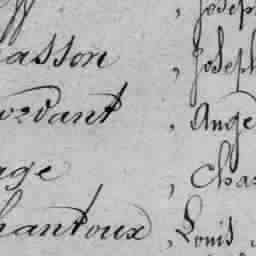 , Joseph
asson , Joseph
ordant , Ange
age , Cha
hantoux , Louis